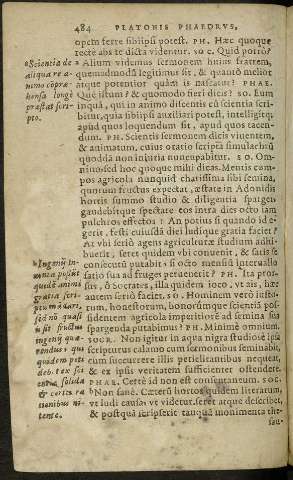 484 PLATONIS PHAEDRVS,
opem ferre sibiipsi potest. PH. Hæc quoque
recte abs te dicta videntur. SOC. Quid porrò?
Alium videmus sermonem huius fratrem,
quemadmodũ legitimus sit, & quantò melior
atque potentior quàm is nascatur? PHAE.
Qué istum? & quomodo fieri dicis? SO. Eum
inquá, qui in animo discentis cũ scientia scri-
bitur, quia sibiipsi auxiliari potest, intelligitq;
apud quos loquendum sit, apud quos tacen-
dum. PH. Scientis sermonem dicis viuentem,
& animatum, cuius oratio scripta simulachrũ
quoddã non iniuria nuncupabitur. SO. Om-
ninò: sed hoc quoque mihi dicas. Mentis cam-
pos agricola nunquid charissima sibi semina,
quorum fructus expectat, æstate in Adonidis
hortis summo studio & diligentia spargẽs
gaudebitque spectare eos intra dies octo iam
pulchros effectos? An potius si quando id e-
gerit, festi cuiusdã diei ludique gratia faciet?
At vbi seriò agens agriculturæ studium adhi-
buerit, seret quidem vbi conuenit, & satis se
consecutũ putabit, si octo mensiũ interuallo
satio sua ad fruges peruenerit? PH. Ita pror-
sus, ô Socrates, illa quidem ioco, vt ais, hæc
autem seriò faciet. SO. Hominem verò iusto-
rum, honestorum, bonorúmque scientiã pos-
sidentem agricola imperitiorẽ ad semina sua
spargenda putabimus? PH. Minimè omnium.
SOCR. Non igitur in aqua nigra studiosè ipsa
scripturus calamo cum sermonibus seminabit,
cum succurrere illis periclitantibus nequeat,
& ex ipsis veritatem sufficienter ostendere.
PHAE. Certè id non est consentaneum. SOC.
Non sanè. Cæterũ hortos quidem literarum,
vt ludi causa, vt videtur, seret atque describet,
& postquã scripserit tanquã monimenta the-
sau-
Scientia de
aliqua re a-
nimo cõpræ-
hensa longè
præstat scri-
pto.
Ingenij in-
uenta possũt
quidẽ animi
gratia scri-
ptu mãdari,
sed nõ quasi
is sit fructus
ingenij quæ-
rendus: qui
quidem peti
debet ex sci-
entia solida
& certis ra-
tionibus ni-
tente.